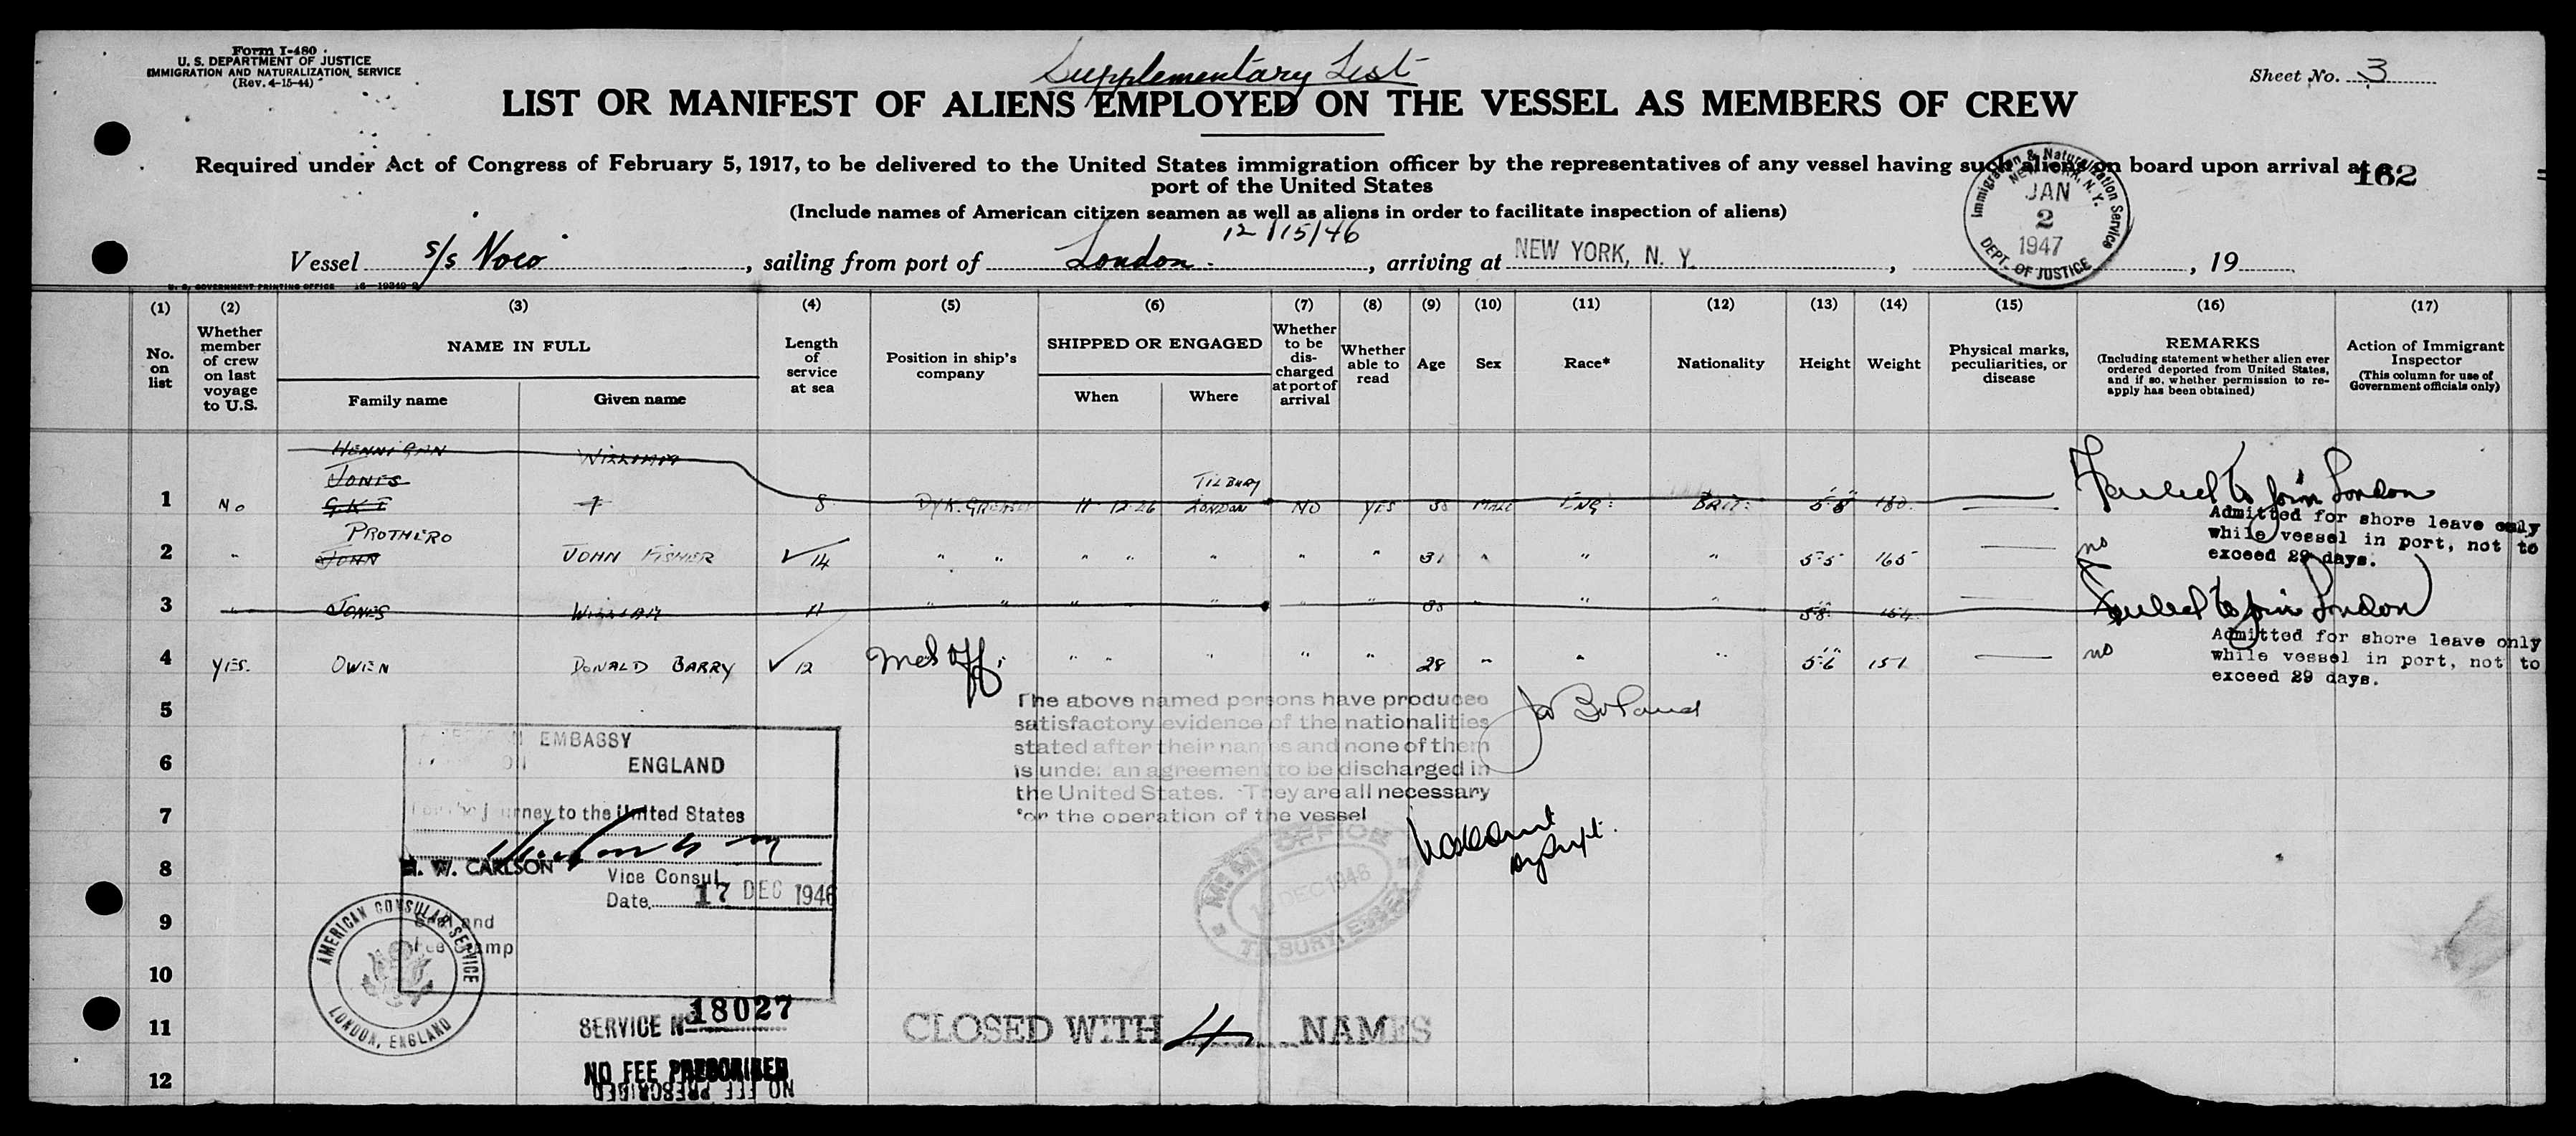 Form I-480
U. S. DEPARTMENT OF JUSTICE
IMMIGRATION AND NATURALIZATION SERVICE
(Rev. 4-15-44)
Supplementary List
Sheet No. 3
LIST OR MANIFEST OF ALIENS EMPLOYED ON THE VESSEL AS MEMBERS OF CREW
Required under Act of Congress of February 5, 1917, to be delivered to the United States immigration officer by the representatives of any vessel having such aliens on board upon arrival at a
port of the United States
162
(Include names of American citizen seamen as well as aliens in order to facilitate inspection of aliens)
Immigration & Naturalization Service
NEW YORK, N. Y.
JAN
2
1947
DEPT. OF JUSTICE
12/15/46
Vessel s/s Noco, sailing from port of London, arriving at NEW YORK, N. Y., 19
U. S. GOVERNMENT PRINTING OFFICE
(1) (2) (3) (4) (5) (6) (7) (8) (9) (10) (11) (12) (13) (14) (15) (16) (17)
No. on list
Whether member of crew on last voyage to U.S.
NAME IN FULL
Family name
Given name
Length of service at sea
Position in ship's company
SHIPPED OR ENGAGED
When
Where
Whether to be discharged at port of arrival
Whether able to read
Age
Sex
Race*
Nationality
Height
Weight
Physical marks, peculiarities, or disease
REMARKS
(Including statement whether alien ever ordered deported from United States, and if so, whether permission to reapply has been obtained)
Action of Immigrant Inspector
(This column for use of Government officials only)
HENNIGAN WILLIAM
JONES
TILBURY
1 NO 8 LONDON NO YES MALE ENG: BRIT: 5-8 180 Failed to join London
PROTHERO
2 " JOHN JOHN FISHER 14 " " " " " " " 31 " " " 5-5 165 no
Admitted for shore leave only
while vessel in port, not to
exceed 29 days.
3 " JONES WILLIAM 11 " " " " " " " " " " 5-8 Failed to join London
4 YES. OWEN DONALD BARRY 12 " " " " " 28 " " " 5-6 151 no
Admitted for shore leave only
while vessel in port, not to
exceed 29 days.
5
6
7
8
9
10
11
12
The above named persons have produced
satisfactory evidence of the nationalities
stated after their names and none of them
is under an agreement to be discharged in
the United States. They are all necessary
for the operation of the vessel
EMBASSY
ENGLAND
journey to the United States
H. W. CARLSON
Vice Consul
Date 17 DEC 1946
Seal and
Fee Stamp
AMERICAN CONSULAR SERVICE
LONDON, ENGLAND
DEC 1946
TILBURY, ESSEX
SERVICE No 18027
NO FEE PRESCRIBED
NO FEE PRESCRIBED
CLOSED WITH 4 NAMES